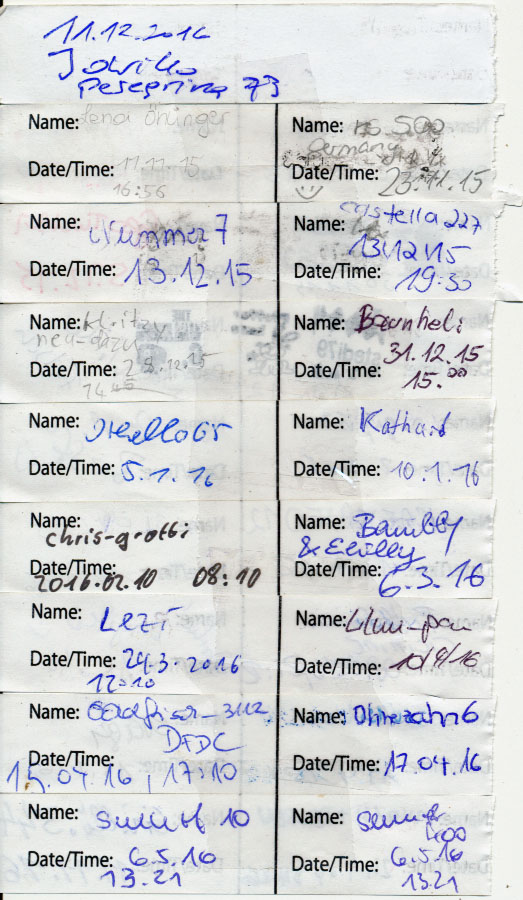 11.12.2016
Peregrina 73
Name: Lena Öhninger
Date/Time: 11.11.15
16:56
Name: 500
Germany
Date/Time: 23.11.15
Name: Nummer 7
Date/Time: 13.12.15
Name: Castella 227
13.12.15
Date/Time: 19:30
Name:
neu-dazu
Date/Time: 28.12.15
14.45
Name: Baumheli
31.12.15
Date/Time: 15.00
Name: Othello65
Date/Time: 5.1.16
Name:
Date/Time: 10.1.16
Name:
chris-grotti
Date/Time:
2016.02.10 08:10
Name: Bambby
& Emilly
Date/Time: 6.3.16
Name: Lezi
Date/Time: 24.3.2016
12:10
Name:
Date/Time: 10/4/16
Name:
DFDC
Date/Time:
15.04.16, 17:10
Name: Ohnezahn6
Date/Time: 17.04.16
Name: 10
Date/Time: 6.5.16
13.21
Name:
Date/Time: 6.5.16
13.21